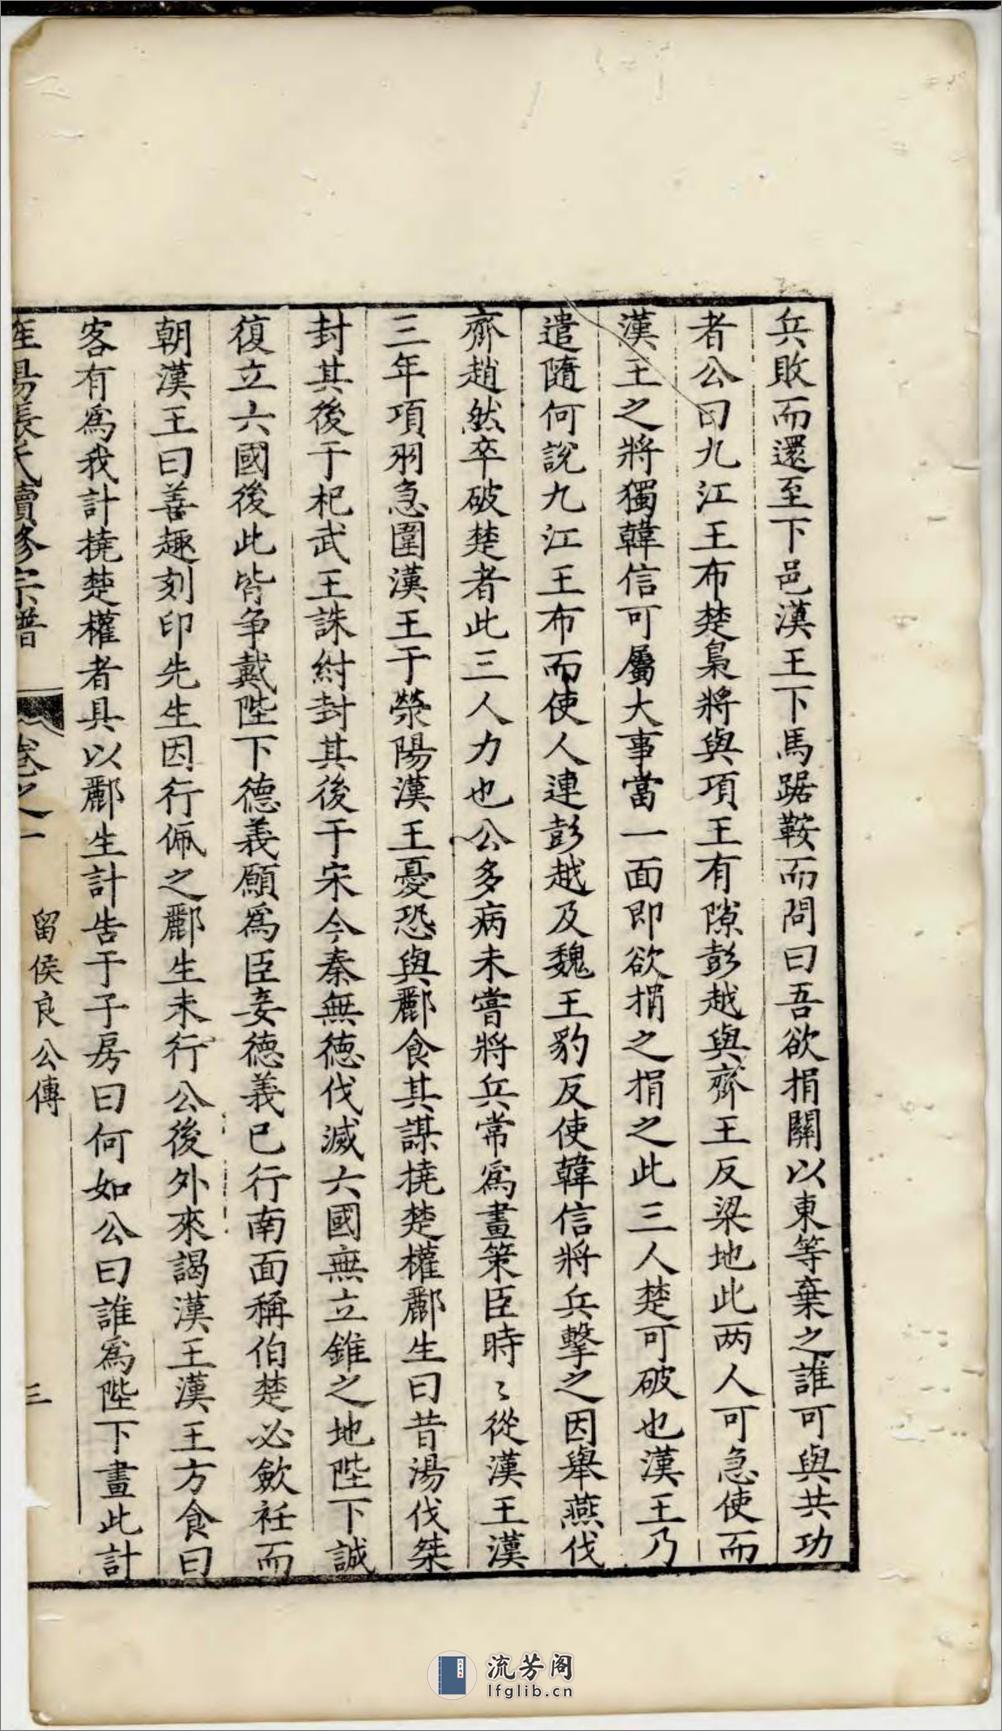 兵敗而還至下邑漢王下馬踞鞍而問曰吾欲捐關以東等棄之誰可與共功
者公曰九江王布楚梟將與項王有隙彭越與齊王反梁地此两人可急使而
漢王之將獨韓信可屬大事當一面即欲捐之捐之此三人楚可破也漢王乃
遣隨何說九江王布而使人連彭越及魏王豹反使韓信將兵擊之因舉燕伐
齊趙然卒破楚者此三人力也公多病未嘗將兵常爲畫策臣時〻從漢王漢
三年項羽急圍漢王于滎陽漢王憂恐與酈食其謀撓楚權酈生曰昔湯伐桀
封其後于杞武王誅紂封其後于宋今秦無德伐滅六國無立錐之地陛下誠
復立六國後此皆争戴陛下德義願爲臣妾德義已行南面稱伯楚必歛衽而
朝漢王曰善趣刻印先生因行佩之酈生未行公後外來謁漢王漢王方食曰
客有爲我計撓楚權者具以酈生計告于子房曰何如公曰誰爲陛下畫此計
陽張氏續修宗譜
卷之一
留侯良公傳
三
流芳阁
lfglib.cn